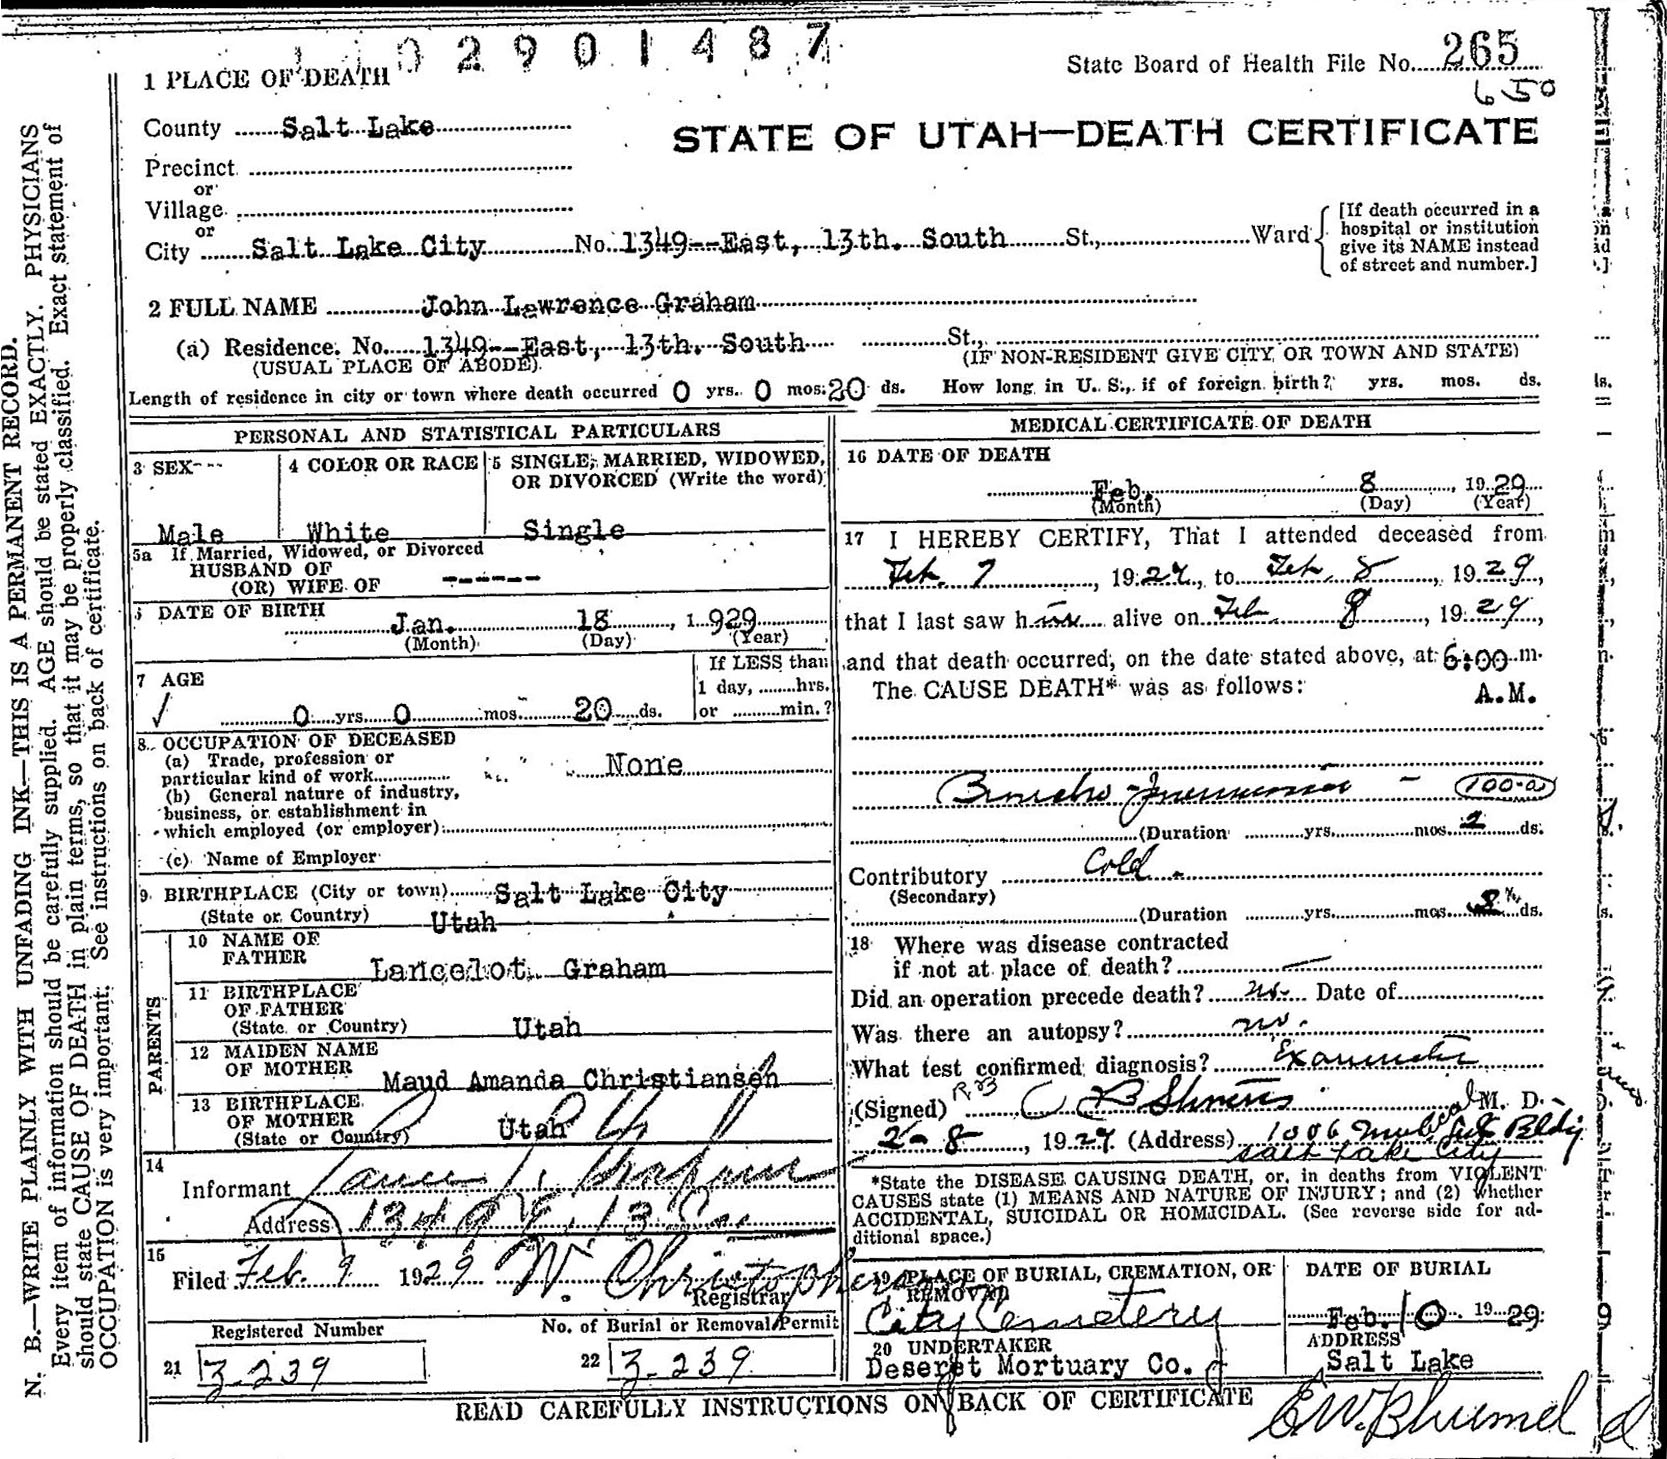 1 1 0 2 9 0 1 4 8 7
State Board of Health File No. 265
650
1 PLACE OF DEATH
County Salt Lake
STATE OF UTAH—DEATH CERTIFICATE
Precinct
or
Village
or
City Salt Lake City No. 1349--East, 13th. South St., Ward
[If death occurred in a
hospital or institution
give its NAME instead
of street and number.]
2 FULL NAME John Lawrence Graham
(a) Residence. No. 1349--East, 13th. South St.,
(USUAL PLACE OF ABODE) (IF NON-RESIDENT GIVE CITY OR TOWN AND STATE)
Length of residence in city or town where death occurred 0 yrs. 0 mos. 20 ds. How long in U. S., if of foreign birth? yrs. mos. ds.
PERSONAL AND STATISTICAL PARTICULARS
3 SEX
Male
4 COLOR OR RACE
White
5 SINGLE, MARRIED, WIDOWED,
OR DIVORCED (Write the word)
Single
5a If Married, Widowed, or Divorced
HUSBAND OF
(OR) WIFE OF ------
6 DATE OF BIRTH
Jan. 18, 1929
(Month) (Day) (Year)
7 AGE
0 yrs. 0 mos. 20 ds.
If LESS than
1 day, ........hrs.
or .........min.?
8. OCCUPATION OF DECEASED
(a) Trade, profession or
particular kind of work None
(b) General nature of industry,
business, or establishment in
which employed (or employer)
(c) Name of Employer
9 BIRTHPLACE (City or town) Salt Lake City
(State or Country) Utah
PARENTS
10 NAME OF
FATHER
Lancelot Graham
11 BIRTHPLACE
OF FATHER
(State or Country) Utah
12 MAIDEN NAME
OF MOTHER
Maud Amanda Christiansen
13 BIRTHPLACE
OF MOTHER
(State or Country) Utah
14
Informant Graham
Address 1349 E. 13 S.
15
Filed Feb. 9 1929 W. Christophers
Registrar
Registered Number
21 3-239
No. of Burial or Removal Permit
22 3-239
MEDICAL CERTIFICATE OF DEATH
16 DATE OF DEATH
Feb. 8, 1929
(Month) (Day) (Year)
17 I HEREBY CERTIFY, That I attended deceased from
Feb. 7, 1929, to Feb. 8, 1929,
that I last saw him alive on Feb 8, 1929,
and that death occurred, on the date stated above, at 6:00 m.
The CAUSE DEATH* was as follows: A.M.
Broncho-Pneumonia - 100-a
(Duration yrs. mos. 2 ds.
Contributory Cold.
(Secondary)
(Duration yrs. mos. 8 ds.
18 Where was disease contracted
if not at place of death? —
Did an operation precede death? no. Date of
Was there an autopsy? no.
What test confirmed diagnosis? Examination
(Signed) M. D.
2-8, 1929 (Address) 1006 Medical Bldg
Salt Lake City
*State the DISEASE CAUSING DEATH, or, in deaths from VIOLENT
CAUSES state (1) MEANS AND NATURE OF INJURY; and (2) whether
ACCIDENTAL, SUICIDAL OR HOMICIDAL. (See reverse side for ad-
ditional space.)
19 PLACE OF BURIAL, CREMATION, OR
REMOVAL
City Cemetery
DATE OF BURIAL
Feb. 10 1929
20 UNDERTAKER
Deseret Mortuary Co.
ADDRESS
Salt Lake
READ CAREFULLY INSTRUCTIONS ON BACK OF CERTIFICATE
N. B.—WRITE PLAINLY WITH UNFADING INK—THIS IS A PERMANENT RECORD.
Every item of information should be carefully supplied. AGE should be stated EXACTLY. PHYSICIANS
should state CAUSE OF DEATH in plain terms, so that it may be properly classified. Exact statement of
OCCUPATION is very important. See instructions on back of certificate.